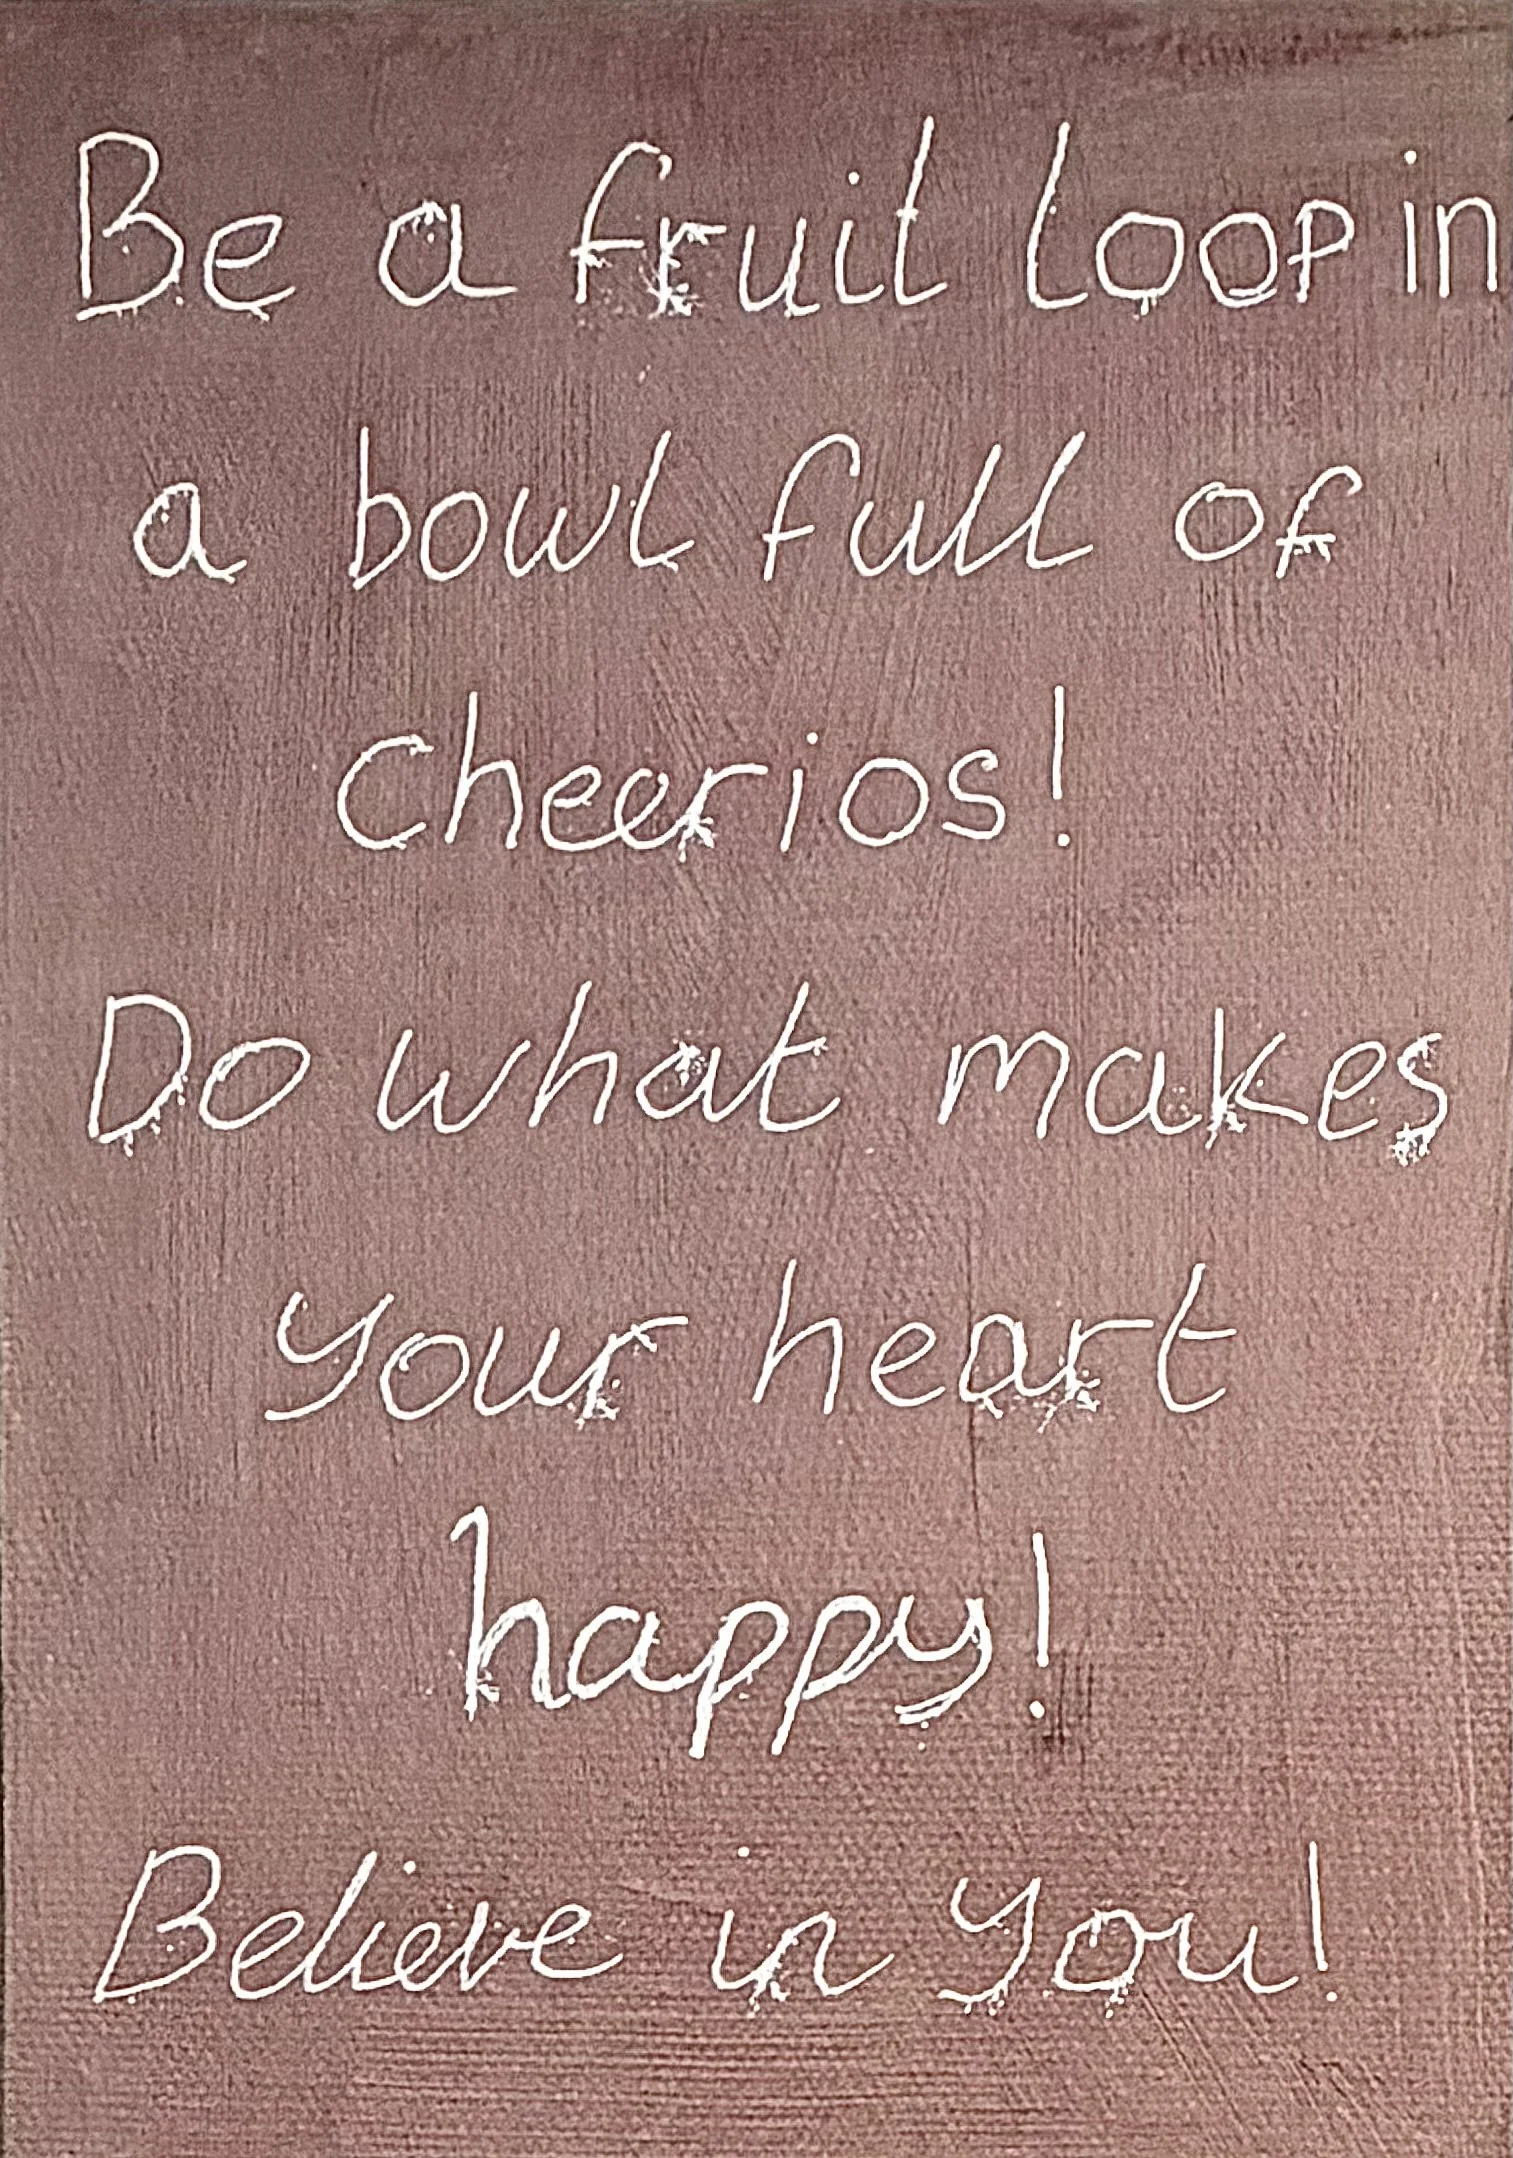 Be a fruit loop in
a bowl full of
Cheerios!
Do what makes
your heart
happy!
Believe in you!